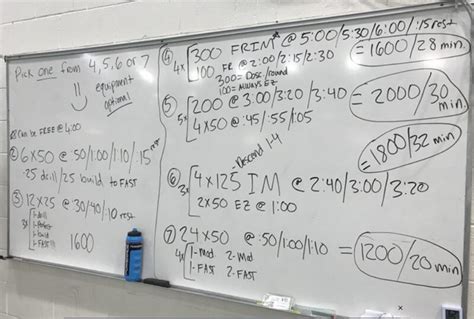 Pick one from 4, 5, 6 or 7
equipment
optional
Can be FREE @ 4:00
② 6x50 @ :50/1:00/1:10/:15 rest
.25 drill/25 build to FAST
③ 12x25 @ :30/40/:10 rest
3x
1-drill
1-build
1-FAST!!!
1600
④ 4x 300 FRIM @ 5:00/5:30/6:00/:15 rest
100 FR @ 2:00/2:15/2:30
300= Desc/round
100= ALWAYS EZ
= 1600/28 min.
⑤ 5x 200 @ 3:00/3:20/3:40
4x50 @ :45/:55/1:05
= 2000/30 min
-Descend 1-4
= 1800/32 min
⑥ 3x 4x125 IM @ 2:40/3:00/3:20
2x50 EZ @ 1:00
⑦ 24x50 @ :50/1:00/1:10 = 1200/20 min
4x
1-Mod 2-Mod
1-FAST 2-FAST